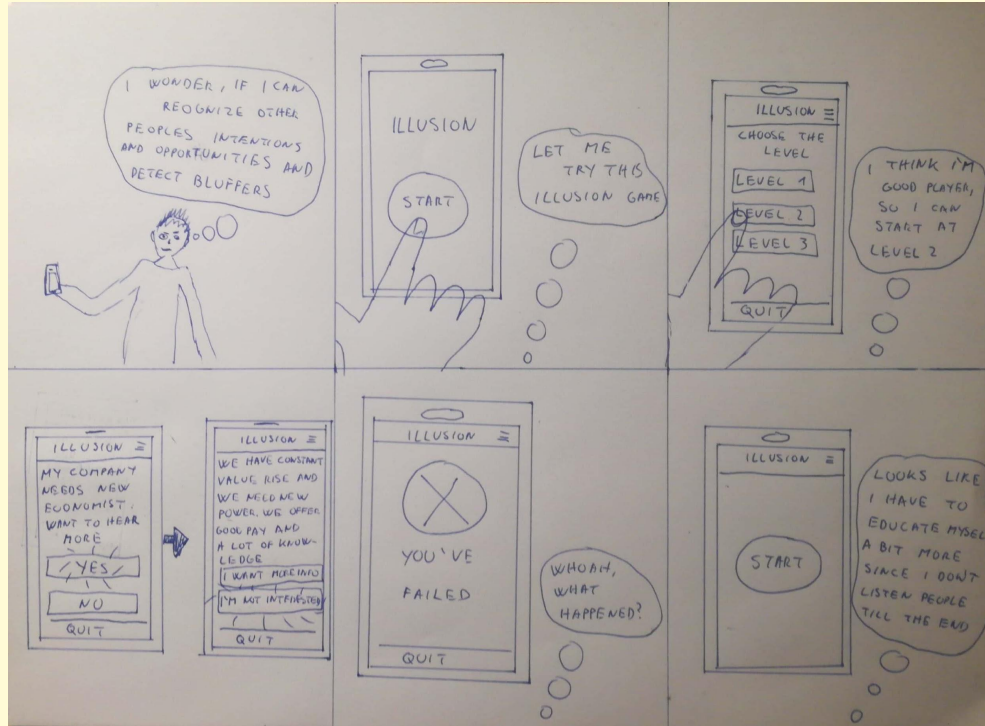 I WONDER, IF I CAN
RECOGNIZE OTHER
PEOPLES INTENTIONS
AND OPPORTUNITIES AND
DETECT BLUFFERS
ILLUSION
START
LET ME
TRY THIS
ILLUSION GAME
ILLUSION
CHOOSE THE
LEVEL
LEVEL 1
LEVEL 2
LEVEL 3
QUIT
I THINK I'M
GOOD PLAYER,
SO I CAN
START AT
LEVEL 2
ILLUSION
MY COMPANY
NEEDS NEW
ECONOMIST.
WANT TO HEAR
MORE
YES
NO
QUIT
ILLUSION
WE HAVE CONSTANT
VALUE RISE AND
WE NEED NEW
POWER. WE OFFER
GOOD PAY AND
A LOT OF KNOW-
LEDGE
I WANT MORE INFO
I'M NOT INTERESTED
QUIT
ILLUSION
YOU'VE
FAILED
QUIT
WHOAH,
WHAT
HAPPENED?
ILLUSION
START
LOOKS LIKE
I HAVE TO
EDUCATE MYSELF
A BIT MORE
SINCE I DON'T
LISTEN PEOPLE
TILL THE END